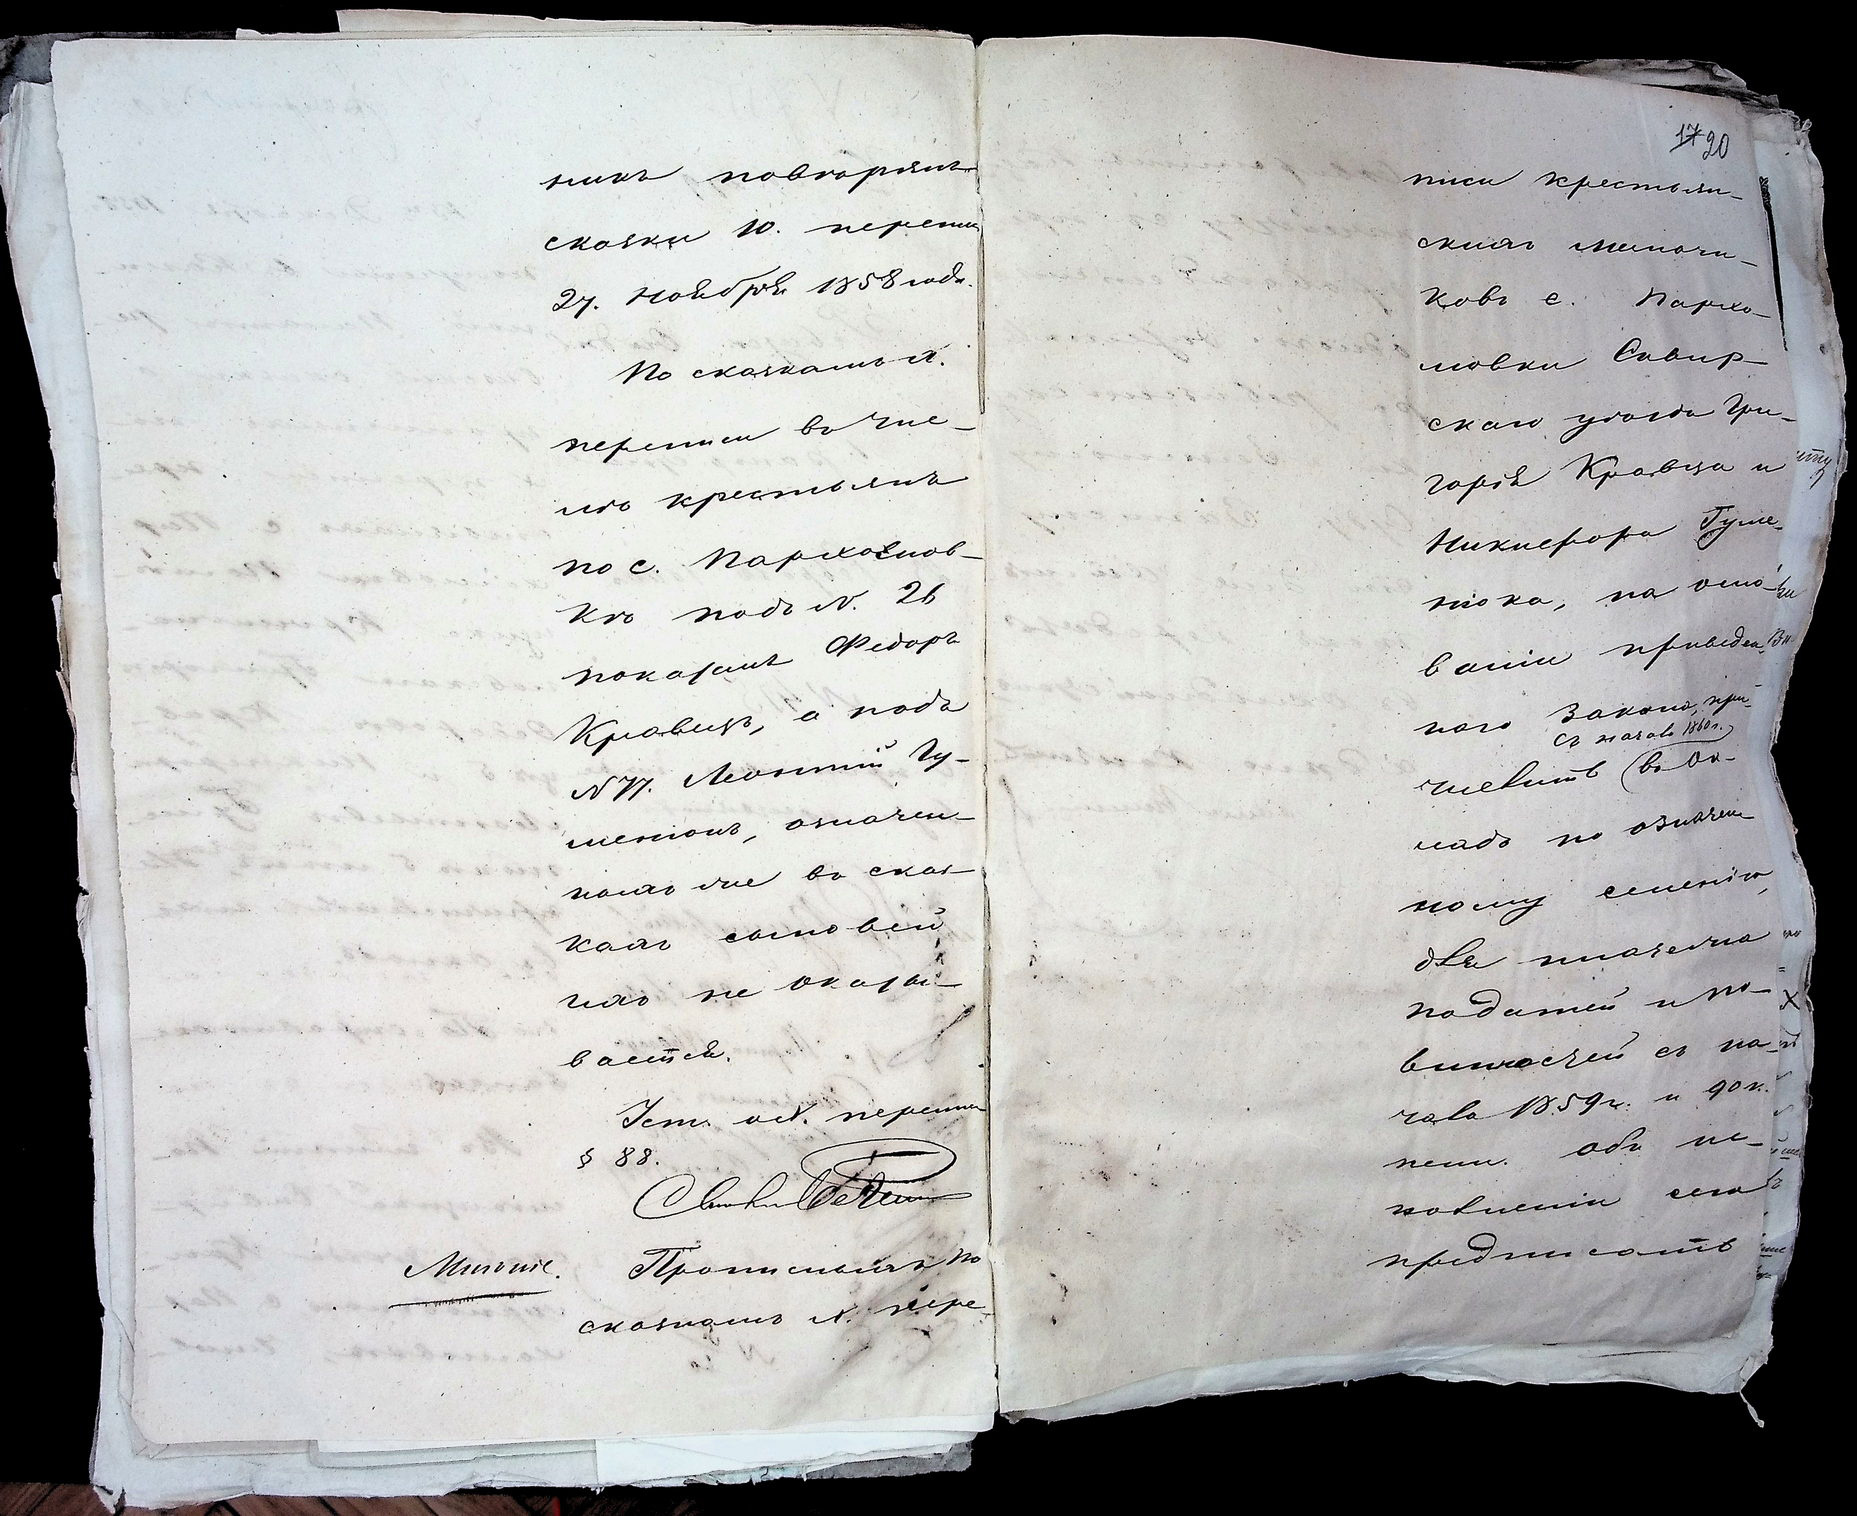 нихъ повѣрялъ
сказки 10. переписи
27. Ноября 1858 года.
По сказкамъ
переписи въ чис-
лѣ крестьянъ
по с. Пархомов-
кѣ подъ N. 26
показанъ Федоръ
Кравецъ, а подъ
N 77. Леонтій Гу-
менюкъ, означен-
ныхъ же въ сказ-
кахъ сыновей
ихъ не оказы-
вается.
Уст. о X. переписи
§ 88.
Мнѣніе. Прописныхъ по
сказкамъ X. пере-
17 20
писи крестьян-
скихъ мальчи-
ковъ с. Пархо-
мовки Сквир-
скаго уѣзда Гри-
горія Кравца и
Никифора Гуме-
нюка, на осно-
ваніи приведен-
наго закона, при-
съ начала 1860 г.
числить въ Ок-
ладъ по означен-
ному селенію,
для платежа
податей и по-
винностей съ на-
чала 1859 г. и
пени. Объ ис-
полненіи сего
предписать